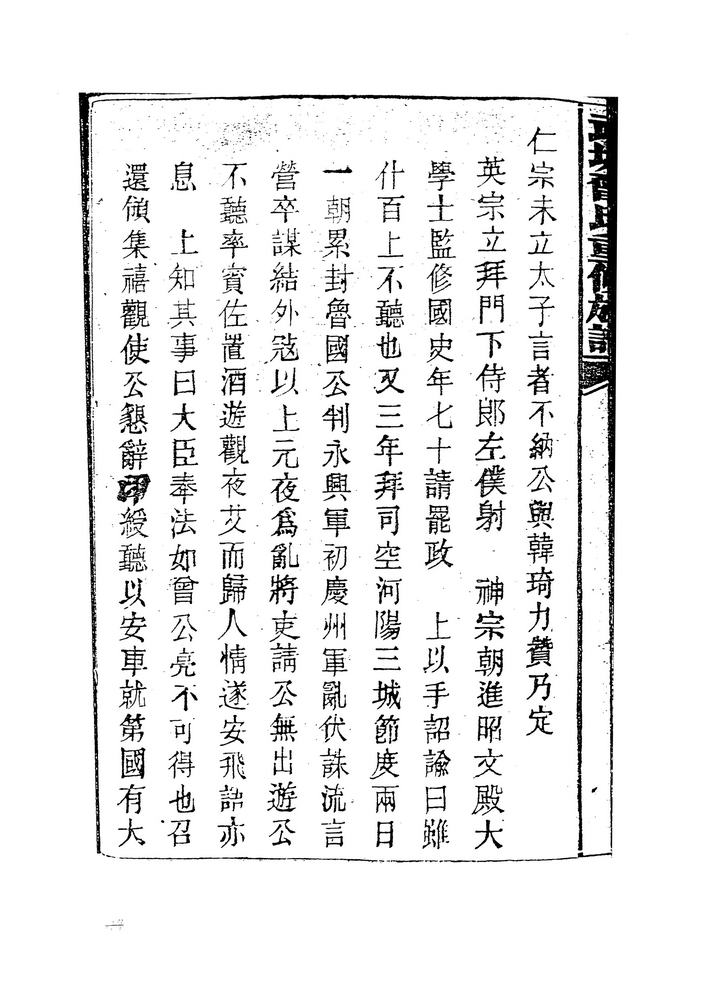 曾氏重修族譜
仁宗未立太子言者不納公與韓琦力贊乃定
英宗立拜門下侍郎左僕射 神宗朝進昭文殿大
學士監修國史年七十請罷政 上以手詔諭曰雖
什百上不聽也又三年拜司空河陽三城節度兩日
一朝累封魯國公判永興軍初慶州軍亂伏誅流言
營卒謀結外寇以上元夜為亂將吏請公無出遊公
不聽率賓佐置酒遊觀夜艾而歸人情遂安飛語亦
息 上知其事曰大臣奉法如曾公亮不可得也召
還領集禧觀使公懇辭印綬聽以安車就第國有大